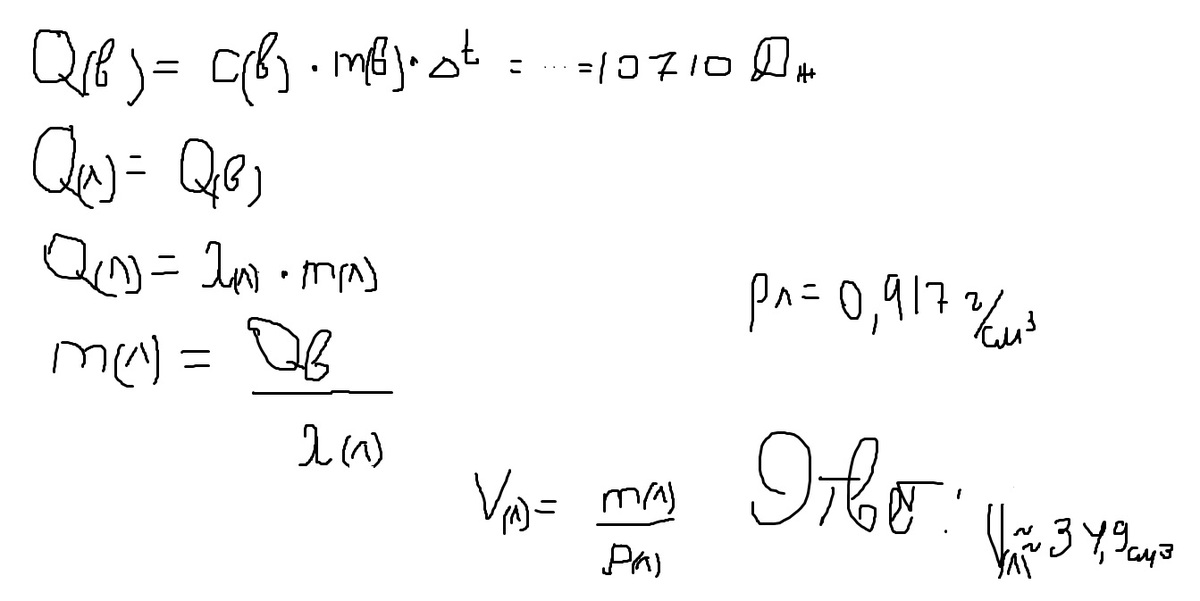 Q(в) = c(в) · m(в) · Δt = ... = 10710 Дж
Q(л) = Q(в)
Q(л) = λ(л) · m(л)
ρл = 0,917 г/см³
m(л) = Qв / λ(л)
V(л) = m(л) / ρ(л)
Ответ: V(л) ≈ 34,9 см³